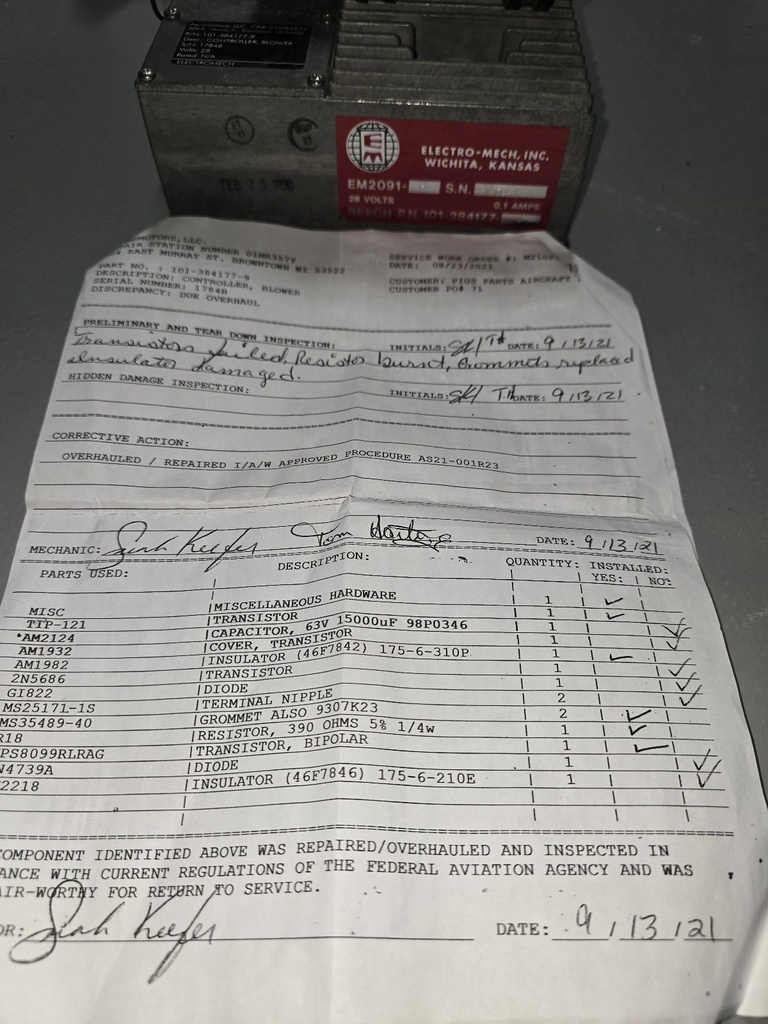 P/N: 101-384177-9
Desc: CONTROLLER, BLOWER
S/N: 1784B
Volts: 28
Rated: N/A
ELECTROMECH
ELECTRO-MECH, INC.
WICHITA, KANSAS
EM2091- S.N.
28 VOLTS 0.1 AMPS
BEECH P.N. 101-384177-
FEB 23
MOTORS, LLC.
AIR STATION NUMBER 01MR357Y
EAST MURRAY ST. BROWNTOWN WI 53522
SERVICE WORK ORDER #:
DATE: 08/23/2021
PART NO. : 101-384177-9
DESCRIPTION: CONTROLLER, BLOWER
SERIAL NUMBER: 1784B
DISCREPANCY: DUE OVERHAUL
CUSTOMER: PIUS PARTS AIRCRAFT
CUSTOMER PO# 71
PRELIMINARY AND TEAR DOWN INSPECTION: INITIALS: SK/TH DATE: 9/13/21
Transistors failed, Resistor burnt, Grommets replaced
Insulator damaged.
HIDDEN DAMAGE INSPECTION: INITIALS: SK/ TH DATE: 9/13/21
CORRECTIVE ACTION:
OVERHAULED / REPAIRED I/A/W APPROVED PROCEDURE AS21-001R23
MECHANIC: Sarah Keefer Tom DATE: 9/13/21
PARTS USED: DESCRIPTION: QUANTITY: INSTALLED:
YES: NO:
MISC MISCELLANEOUS HARDWARE 1
TIP-121 TRANSISTOR 1
*AM2124 CAPACITOR, 63V 15000uF 98P0346 1
AM1932 COVER, TRANSISTOR 1
AM1982 INSULATOR (46F7842) 175-6-310P 1
2N5686 TRANSISTOR 1
GI822 DIODE 1
MS25171-1S TERMINAL NIPPLE 2
MS35489-40 GROMMET ALSO 9307K23 2
R18 RESISTOR, 390 OHMS 5% 1/4w 1
PS8099RLRAG TRANSISTOR, BIPOLAR 1
N4739A DIODE 1
2218 INSULATOR (46F7846) 175-6-210E 1
COMPONENT IDENTIFIED ABOVE WAS REPAIRED/OVERHAULED AND INSPECTED IN
ANCE WITH CURRENT REGULATIONS OF THE FEDERAL AVIATION AGENCY AND WAS
AIR-WORTHY FOR RETURN TO SERVICE.
OR: Sarah Keefer DATE: 9/13/21